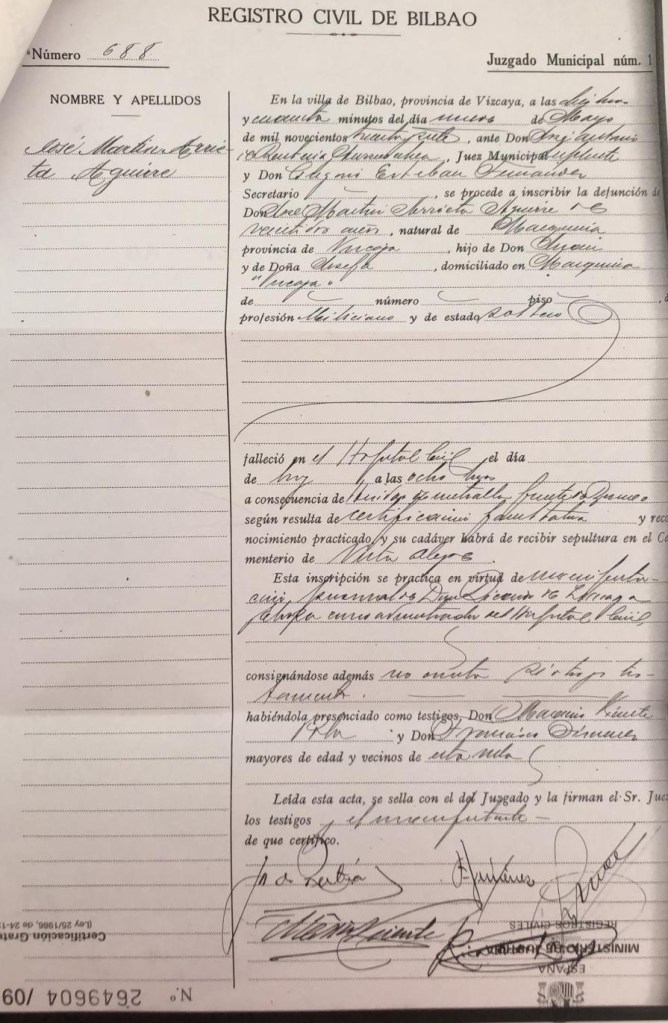 REGISTRO CIVIL DE BILBAO
Número 688
Juzgado Municipal núm. 1
NOMBRE Y APELLIDOS
José Martin Arrie-
ta Aguirre
En la villa de Bilbao, provincia de Vizcaya, a las
y cuarenta minutos del día nueve de Mayo
de mil novecientos treinta y siete, ante Don
, Juez Municipal Suplente
y Don Gregorio Esteban Fernandez
Secretario , se procede a inscribir la defunción de
Don José Martin Arrieta Aguirre de
veintidos años, natural de Marquina
provincia de Vizcaya, hijo de Don
y de Doña Josefa, domiciliado en Marquina
"Vizcaya"
de número piso
profesión Miliciano y de estado soltero
falleció en el Hospital Civil el día
de hoy, a las ocho
a consecuencia de heridas metralla frente de
según resulta de certificación facultativa y reco
nocimiento practicado, y su cadáver habrá de recibir sepultura en el Ce
menterio de Vista Alegre
Esta inscripción se practica en virtud de manifesta
ción personal de Don de
como administrador del Hospital Civil,
consignándose además no consta si otorgó tes
tamento.
habiéndola presenciado como testigos, Don Vicente
y Don Francisco Jimenez
mayores de edad y vecinos de esta villa
Leída esta acta, se sella con el del Juzgado y la firman el Sr. Juez
los testigos el manifestante
de que certifico.
F. Jiménez
Vicente
REGISTROS CIVILES
MINISTERIO DE JUSTICIA
ESPAÑA
Certificación Gratu
(Ley 25/1986, de 24-12
N.º 2649604 /09